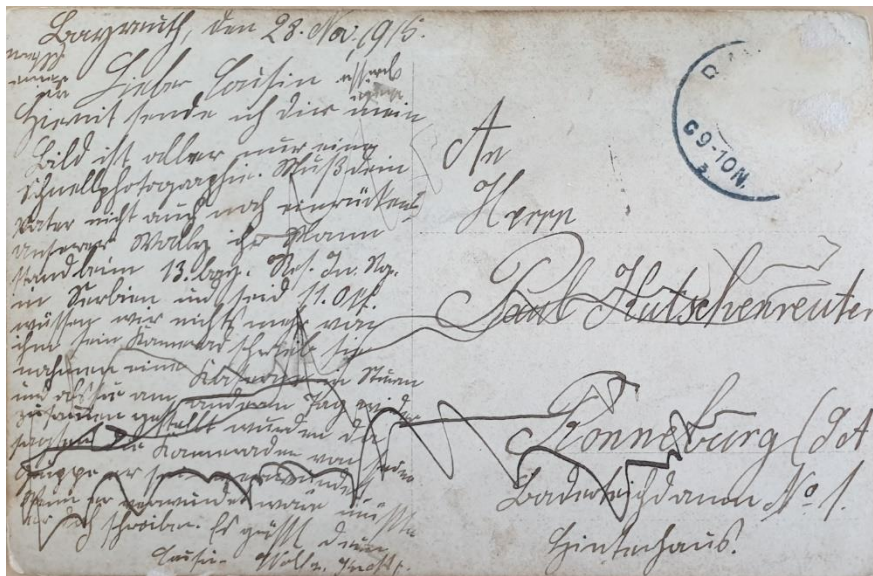 Bayreuth, den 28. Nov. 1915.
Lieber Cousin
Hiermit sende ich dir mein
Bild ist aller nur eine
Schnellphotographie. Muß dein
Vater nicht auch noch einrücken.
Unserer Wally ihr Mann
stand beim 13. bay. Res. In. Rg.
in Serbien und seid 11. Okt.
wissen wir nichts mehr von
ihm sein Kamerad schrieb sie
nahmen eine Kaserne in Sturm
und als sie am andern Tag wieder
zusammen gestellt wurden da
sagten die Kameraden von seiner
Gruppe er sei verwundet
wenn er verwundet wäre müßte
er doch schreiben. Es grüßt dein
Cousin
An
Herrn
Paul Hutschenreuter
Ronneburg (SA
Baderteichdamm No 1.
Hinterhaus.
9-10N.